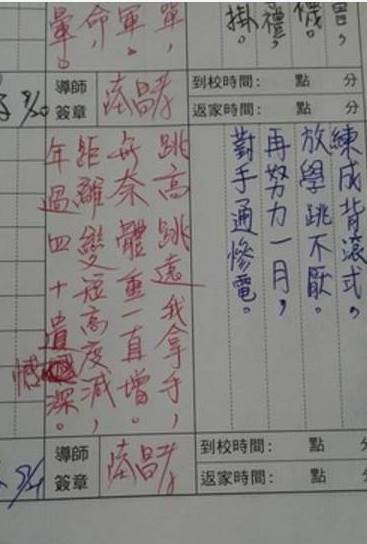 掛。
禮，
單，
軍。
命，
暈。
導師
簽章
到校時間： 點 分
返家時間： 點 分
練成背滾式，
放學跳不厭。
再努力一月，
對手通慘電。
跳高跳遠我拿手，
無奈體重一直增。
距離變短高度減，
年過四十遺憾深。
導師
簽章
到校時間： 點 分
返家時間： 點 分